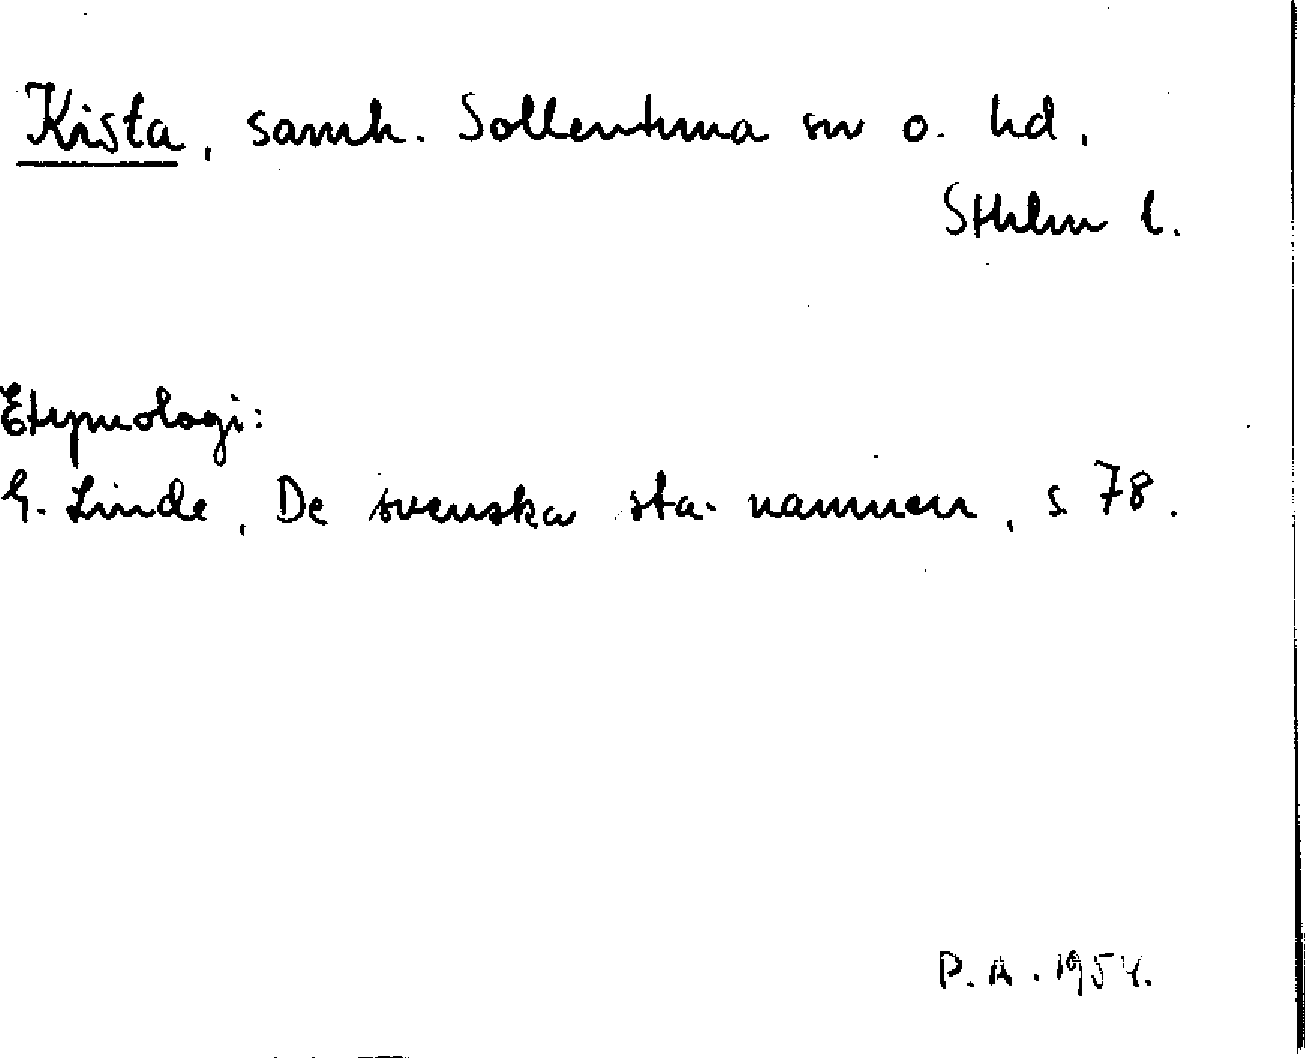 Kista, samh. Sollentuna sn o. hd,
Sthlm l.
Etymologi:
G. Linde, De svenska sta-namnen, s 78.
P.A. 1954.